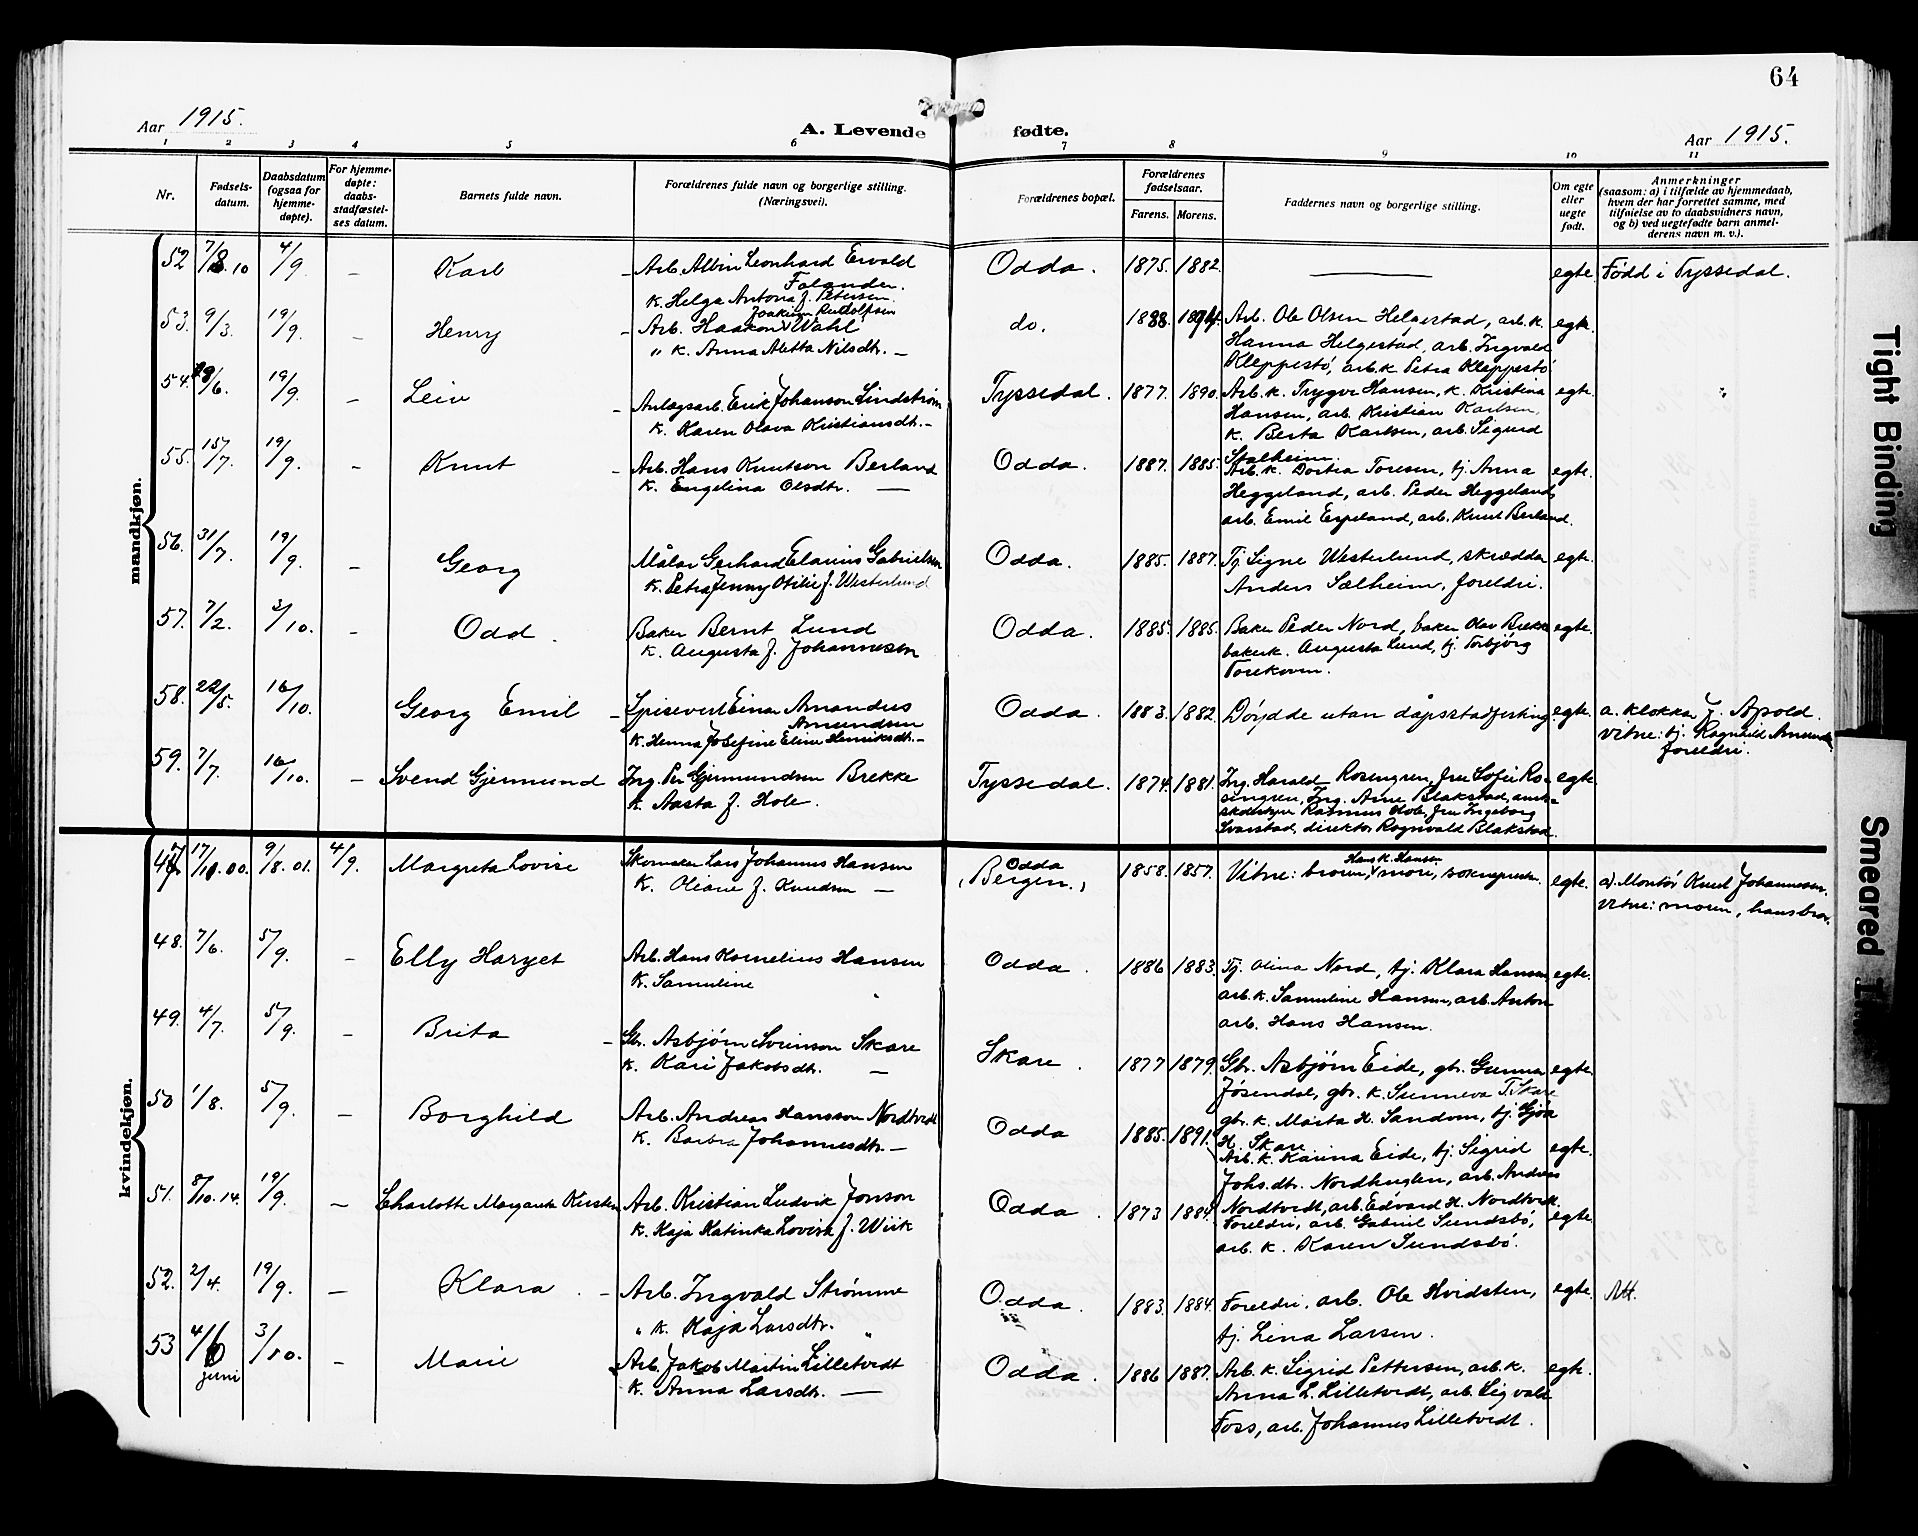 64
Aar 1915.
A. Levende fødte.
Aar 1915.
1 2 3 4 5 6 7 8 9 10 11
Nr.
Fødsels-
datum.
Daabsdatum
(ogsaa for
hjemme-
døpte).
For hjemme-
døpte:
daabs-
stadfæstel-
ses datum.
Barnets fulde navn.
Forældrenes fulde navn og borgerlige stilling.
(Næringsvei).
Forældrenes bopæl.
Forældrenes
fødselsaar.
Farens. Morens.
Faddernes navn og borgerlige stilling.
Om egte
eller
uegte
født.
Anmerkninger
(saasom: a) i tilfælde av hjemmedaab,
hvem der har forrettet samme, med
tilføielse av to daabsvidners navn,
og b) ved uegtefødte barn anmel-
derens navn m. v.).
mandkjøn.
52 7/8.10 4/9. – Karl – Arb. Albin Leonhard Ervald
Falander.
K. Helga Antona f. Petersen.
Odda. 1875. 1882. — egte. Född i Tyssedal.
53. 9/3. 19/9. – Henry – Arb. Haakon Joakim Rudolfsen Wahl
" K. Anna Aletta Nilsdtr. –
do. 1888. 1894. Arb. Ole Olsen Helgestad, arb. k.
Hanna Helgestad, arb. Ingvald
Kleppestö, arb. k. Petra Kleppestö
egte.
54. 28/6. 19/9. – Leiv – Anlegsarb. Erik Johanson Lindström
K. Karen Olava Kristiansdtr. –
Tyssedal. 1877. 1890. Arb. k. Trygve Hansen, k. Kristina
Hansen, arb. Kristian Karlsen,
k. Berta Karlsen, arb. Sigurd
Stalheim.
egte. "
55. 15/7. 19/9. – Knut – Arb. Hans Knutson Berland
K. Engelina Olsdtr. —
Odda. 1887. 1885. Arb. k. Dortea Toresen, tj. Anna
Heggeland, arb. Peder Heggeland,
arb. Emil Erpeland, arb. Knut Berland.
egte.
56. 31/7. 19/9. – Georg Målar Gerhard Elarius Gabrielsen
K. Petra Jenny Otilie f. Westerlund
Odda. 1885. 1887. Tj. Signe Westerlund, skrædder
Anders Sælheim, foreldri.
egte.
57. 7/2. 3/10. – Odd. Baker Bernt Lund
K. Augusta f. Johannesen
Odda. 1885. 1885. Baker Peder Nord, baker Olav Brekke
bakerk. Augusta Lund, tj. Torbjörg
egte.
58. 22/5. 16/10. Georg Emil – Spisevert Einar Amandus
Amundsen
K. Henna Josefine Eline Henriksdtr. –
Odda. 1883. 1882. Döydde utan dåpsstadfesting. egte. a. klokkar J. Apold.
vitne: tj. Ragnhild
foreldri.
59. 7/7. 16/10. – Svend Gjermund Ing. Per Gjermundsen Brekke
K. Aasta f. Hole.
Tyssedal. 1874. 1881. Ing. Harald Rosengren, fru Sofie Ro-
sengren, Ing. Arne Blakstad, amts-
skolestyrer Rasmus Hole, fru Ingeborg
Svarstad, direktör Ragnvald Blakstad.
egte.
kvindekjøn.
47 17/10.00. 9/8.01. 4/9. Margreta Lovise Skomaker Lars Johannes Hansen
K. Oliane f. Knudsen –
Odda
(Bergen.) 1858. 1857. Vitne: broren, Hans K. Hansen mori, soknepresten. egte. a). Montör Knut Johannesen.
vitne: moren, hans bror.
48. 7/6. 5/9. – Elly Haryet Arb. Hans Kornelius Hansen
K. Samuline "
Odda. 1886 1883. Tj. Olina Nord, tj. Klara Hansen,
arb. k. Samuline Hansen, arb. Anton
arb. Hans Hansen.
egte.
49. 4/7. 5/9. – Brita – Gbr. Asbjörn Sveinson Skare
K. Kari Jakobsdtr. –
Skare. 1877 1879. Gbr. Asbjörn Eide, gbr. Gunnar
Jösendal, gbr. k. Sunneva T. Skare
gbr. k. Marta H. Sandven, tj. Gjöa
H. Skare
egte.
50 1/8. 5/9. – Borghild Arb. Andreas Hansson Nordtvedt
K. Barbra Johannesdtr. –
Odda 1885. 1891. Arb. k. Karina Eide, tj. Sigrid
Johs.dtr. Nordhuglen, arb. Andreas
Nordtvedt, arb. Edvard H. Nordtvedt.
egte.
51. 8/10.14. 19/9. – Charlotte Margareta Kirsten Arb. Kristian Ludvik Jonson
K. Kaja Katinka Lovisa f. Wiik
Odda. 1873 1884. Foreldri, arb. Gabriel Sundsbö,
arb. k. Karen Sundsbö.
egte.
52. 2/4. 19/9. – Klara. – Arb. Ingvald Strømme
" K. Kaja Larsdtr. "
Odda. 1883. 1884. Foreldri, arb. Ole Hvidsten,
tj. Lina Larsen.
egte.
53 4/6 juni 3/10. – Marie Arb. Jakob Martin Lilletvedt
K. Anna Larsdtr. —
Odda. 1886 1887. Arb. k. Sigrid Pettersen, arb. k.
Anna L. Lilletvedt, arb. Sigvald
Foss, arb. Johannes Lilletvedt.
egte.
Tight Binding
Smeared